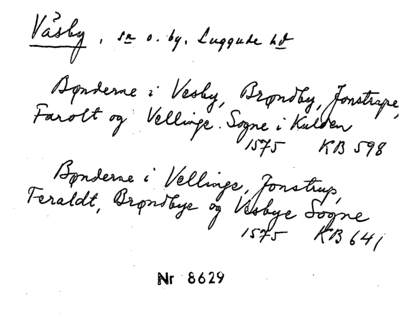 Väsby, sn o. by. Luggude hd
Bønderne i Vesby, Brøndby, Jonstrupe,
Farolt og Vellinge Sogne i Kulden
1575 KB 598
Bønderne i Vellinge, Jonstrup,
Feraldt, Brøndbye og Vesbye Sogne
1575 KB 641
Nr 8629